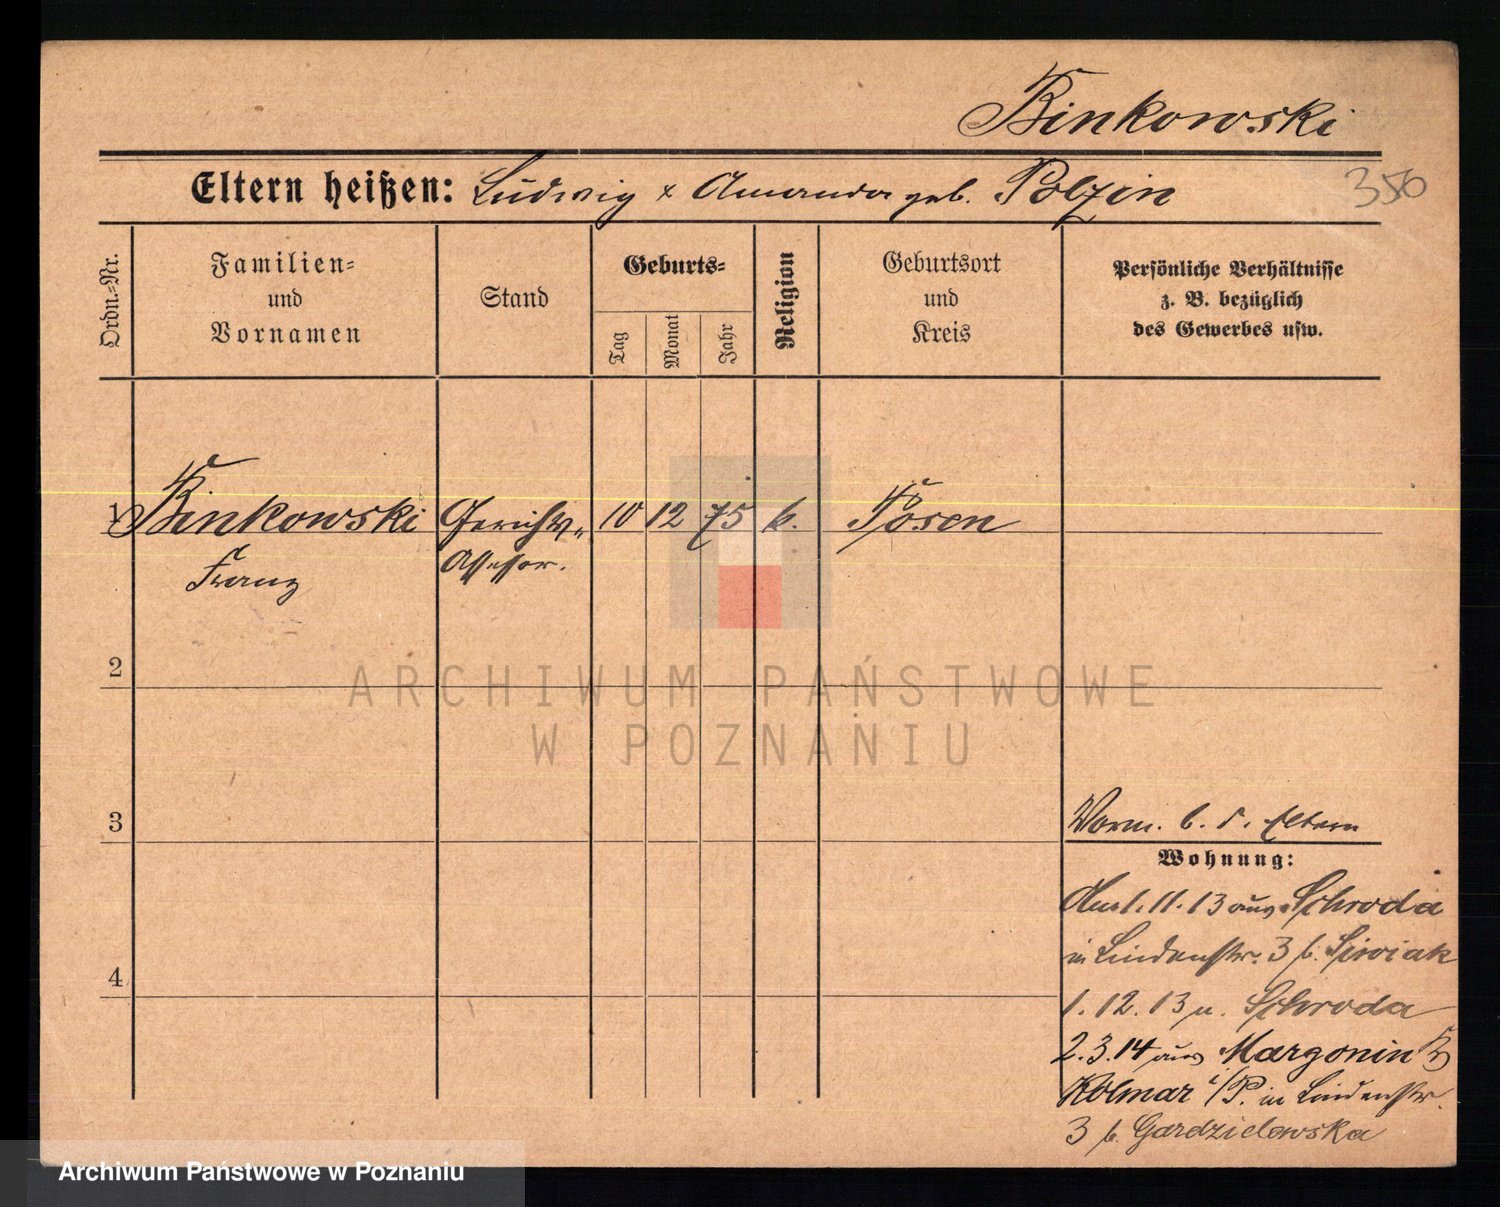 Binkowski
Eltern heißen: Ludwig & Amanda geb. Polzin
350
Ordn.=Nr.
Familien=
und
Vornamen
Stand
Geburts=
Tag
Monat
Jahr
Religion
Geburtsort
und
Kreis
Persönliche Verhältnisse
z. B. bezüglich
des Gewerbes usw.
1 Binkowski Gerichts= 10 12 75 k. Posen
Franz Assessor.
2
3
Vorm. b. d. Eltern
Wohnung:
1.11.13 aus Schroda
in Lindenstr. 3 b. Siwiak
4
1.12.13 n. Schroda
2.3.14 aus Margonin Kr
Kolmar i/P. in Lindenstr.
3 b. Gardzielewska
ARCHIWUM PAŃSTWOWE
W POZNANIU
Archiwum Państwowe w Poznaniu